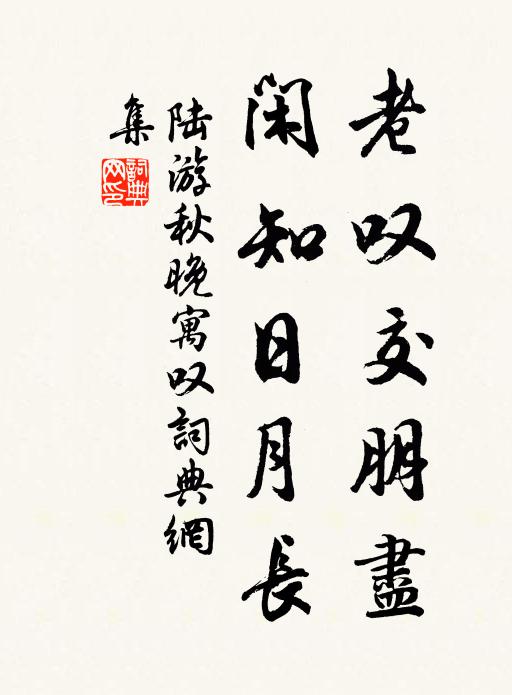 老叹交朋盡
闲知日月長
陆游秋晚寓叹詞典網
集
詞典网印